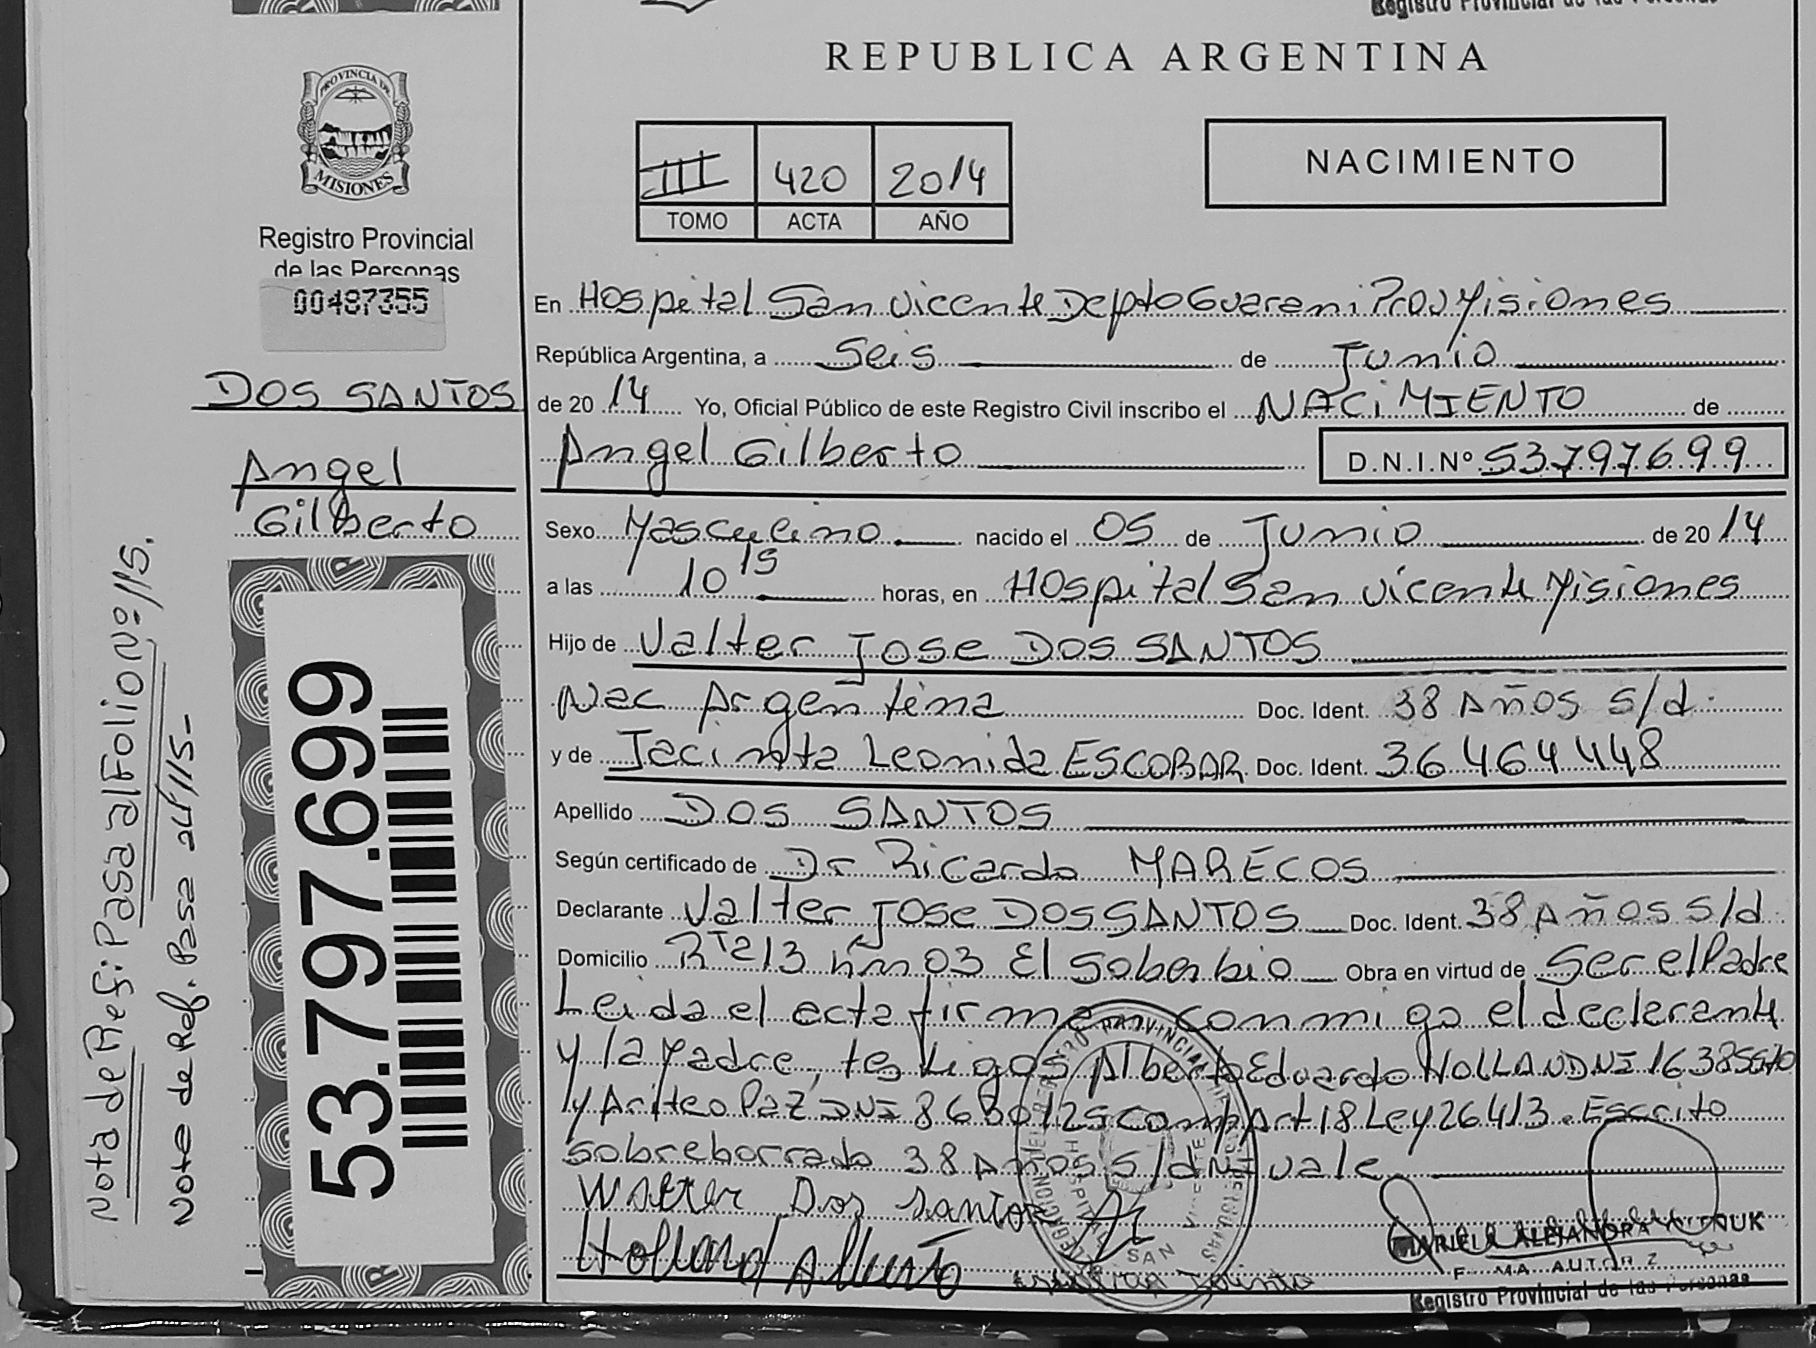 Registro Provincial de las Personas
REPUBLICA ARGENTINA
PROVINCIA DE
MISIONES
Registro Provincial
de las Personas
00487355
III 420 2014
TOMO ACTA AÑO
NACIMIENTO
DOS SANTOS
Angel
Gilberto
53.797.699
Nota de Ref: Pasa al Folio Nº 115.
Nota de Ref. Pasa al 115-
En Hospital San Vicente Depto Guarani Prov Misiones
República Argentina, a Seis de Junio
de 2014 Yo, Oficial Público de este Registro Civil inscribo el NACIMIENTO de
Angel Gilberto D.N.I.Nº 53797699
Sexo Masculino nacido el 05 de Junio de 2014
a las 10 15 horas, en Hospital San Vicente Misiones
Hijo de Valter Jose DOS SANTOS
Nac Argentina Doc. Ident. 38 Años s/d
y de Jacinta Leonida ESCOBAR Doc. Ident. 36464448
Apellido DOS SANTOS
Según certificado de Dr Ricardo MARECOS
Declarante Valter Jose DOS SANTOS Doc. Ident. 38 Años s/d
Domicilio Rta 213 km 03 El Soberbio Obra en virtud de Ser el Padre
Leida el acta firma conmigo el declarante
y la Madre, testigos Alberto Eduardo HOLLAND DNI
y Ariteo Paz DNI 8630125 Comp Art 18 Ley 26413. Escrito
sobreborrado 38 Años s/d vale
Walter Dos Santos
Holland Alberto
MARIELA ALEJANDRA
Registro Provincial de las Personas